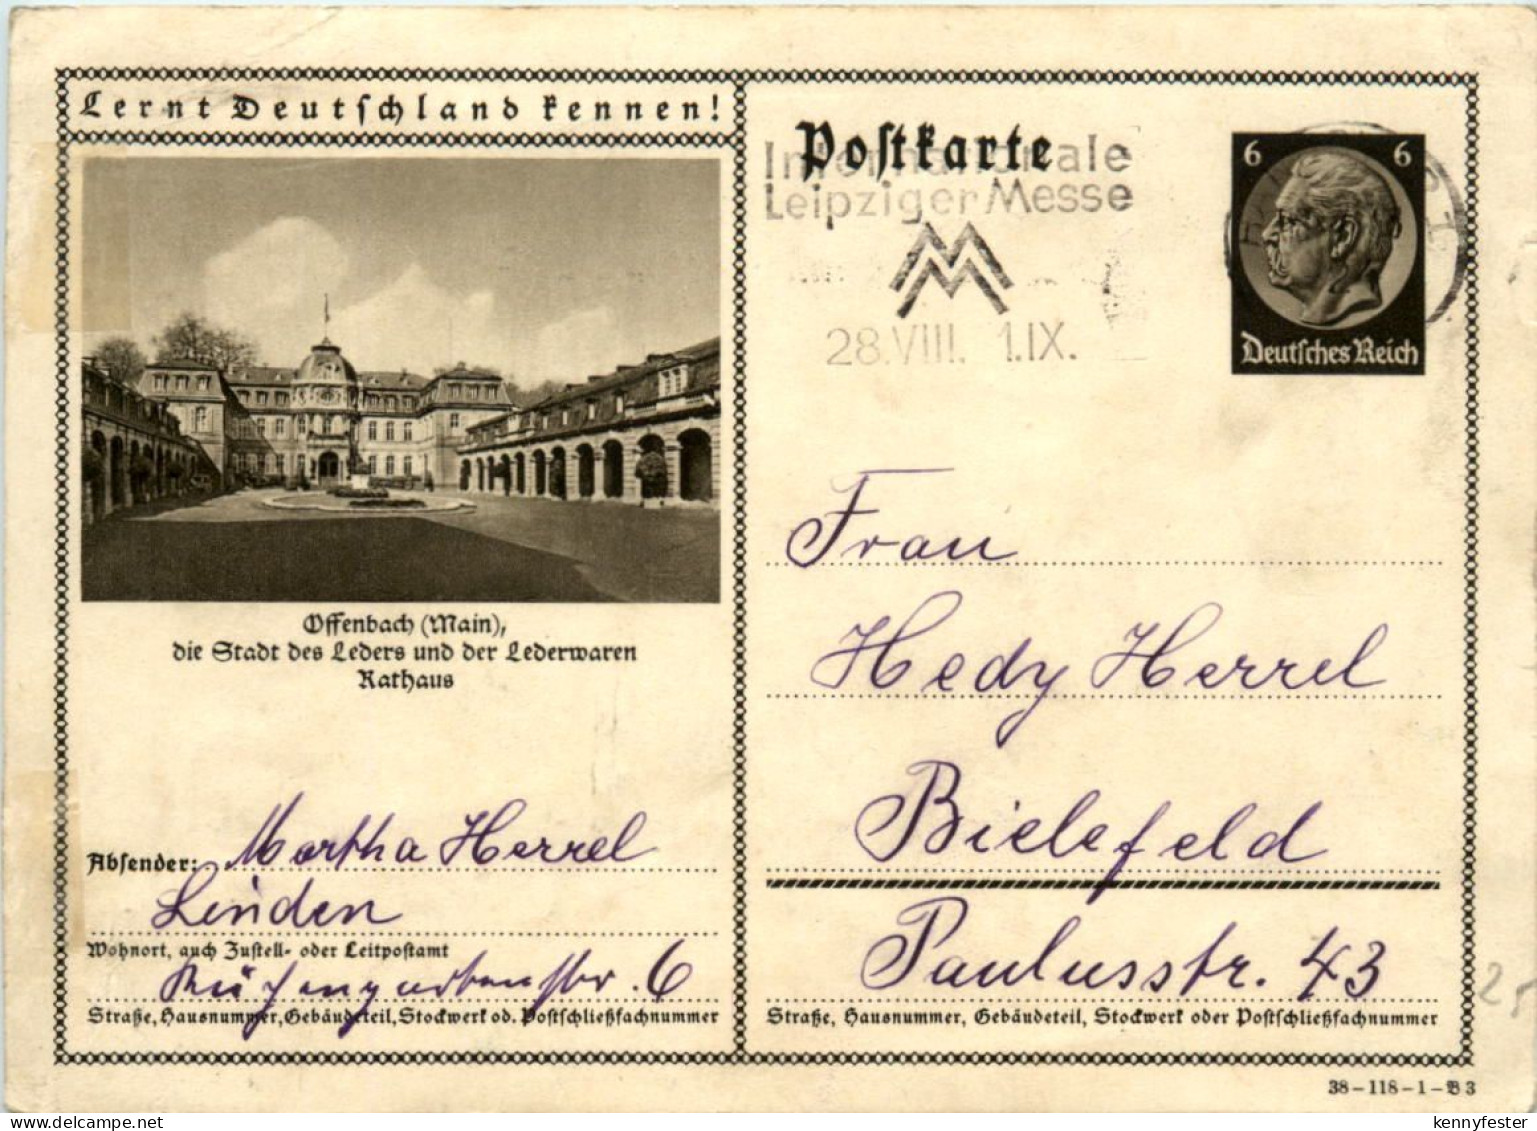 Lernt Deutschland kennen!
Offenbach (Main),
die Stadt des Leders und der Lederwaren
Rathaus
Absender: Martha Herrel
Linden
Wohnort, auch Zustell- oder Leitpostamt
6
Straße, Hausnummer, Gebäudeteil, Stockwerk od. Postschließfachnummer
Postkarte
Internationale
Leipziger Messe
28.VIII. 1.IX.
6 6
Deutsches Reich
Frau
Hedy Herrel
Bielefeld
Paulusstr. 43
Straße, Hausnummer, Gebäudeteil, Stockwerk oder Postschließfachnummer
25
38-118-1-B3
kennyfester